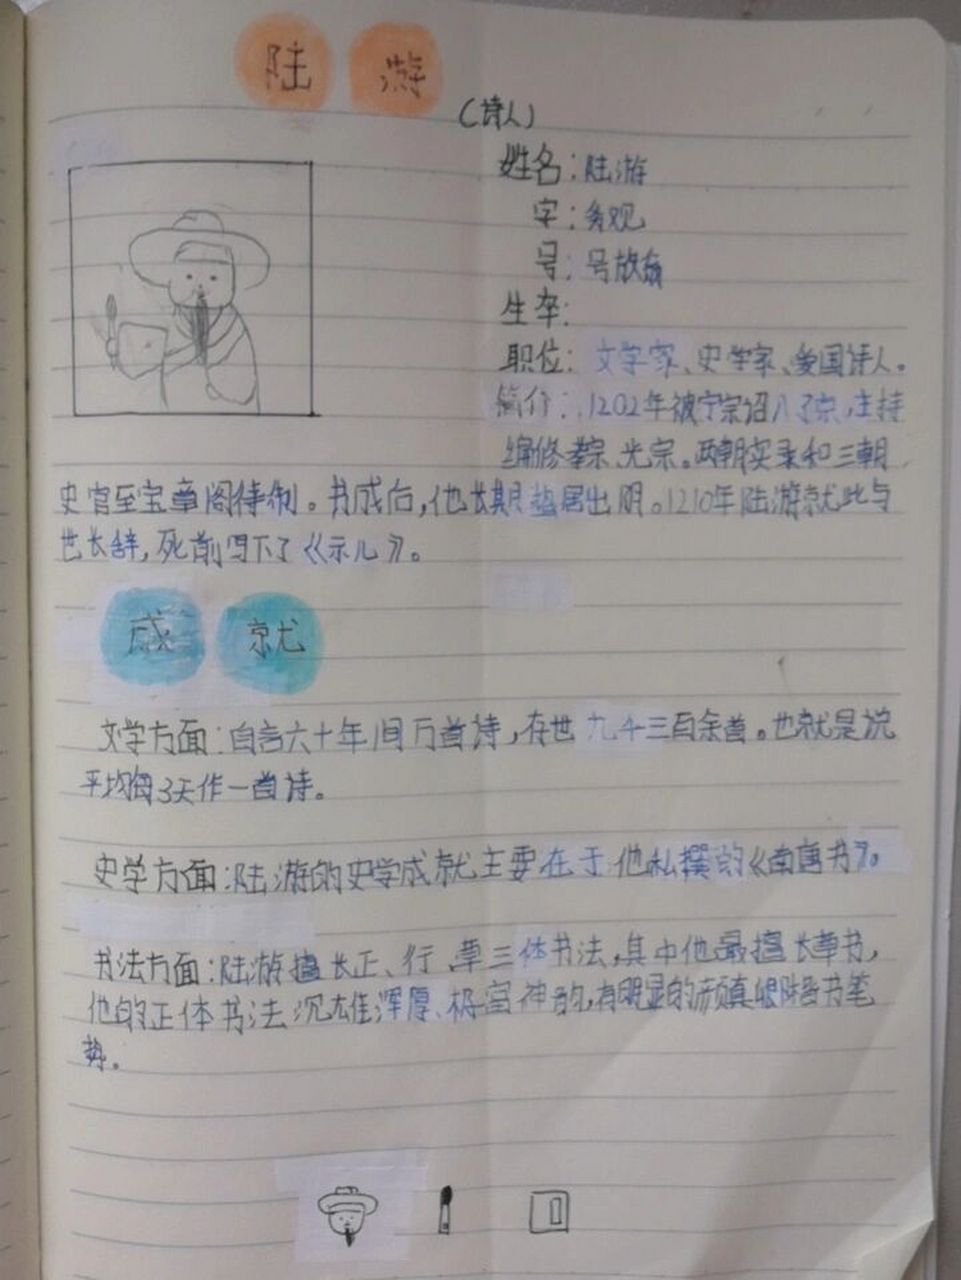 陆 游
(诗人)
姓名:陆游
字:务观
号:号放翁
生卒:
职位:文学家、史学家、爱国诗人。
简介:1202年被宁宗诏入京,主持
编修孝宗、光宗。两朝实录和三朝
史官至宝章阁待制。书成后,他长期蛰居山阴。1210年陆游就此与
世长辞,死前写下了《示儿》。
成 就
文学方面:自言六十年间万首诗,在世九千三百余首。也就是说
平均每3天作一首诗。
史学方面:陆游的史学成就主要在于他私撰的《南唐书》。
书法方面:陆游擅长正、行、草三体书法,其中他最擅长草书,
他的正体书法沉雄浑厚、极富神韵,有明显的颜真卿 书笔
势。